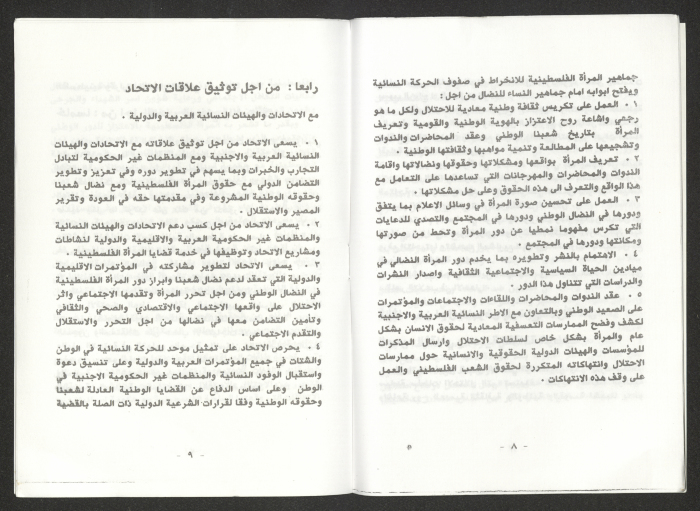 جماهير المرأة الفلسطينية للانخراط في صفوف الحركة النسائية
ويفتح ابوابه امام جماهير النساء للنضال من اجل :
١ ٠ العمل على تكريس ثقافة وطنية معادية للاحتلال ولكل ما هو
رجعي واشاعة روح الاعتزاز بالهوية الوطنية والقومية وتعريف
المرأة بتاريخ شعبنا الوطني وعقد المحاضرات والندوات
وتشجيعها على المطالعة وتنمية مواهبها وثقافتها الوطنية ٠
٢ ٠ تعريف المرأة بواقعها ومشكلاتها وحقوقها ونضالاتها واقامة
الندوات والمحاضرات والمهرجانات التي تساعدها على التعامل مع
هذا الواقع والتعرف الى هذه الحقوق وعلى حل مشكلاتها ٠
٣ ٠ العمل على تحسين صورة المرأة في وسائل الاعلام بما يتفق
ودورها في النضال الوطني ودورها في المجتمع والتصدي للدعايات
التي تكرس مفهوما نمطيا عن دور المرأة وتحط من صورتها
ومكانتها ودورها في المجتمع ٠
٤ ٠ الاهتمام بالنشر وتطويره بما يخدم دور المرأة النضالي في
ميادين الحياة السياسية والاجتماعية الثقافية واصدار النشرات
والدراسات التي تتناول هذا الدور ٠
٥ ٠ عقد الندوات والمحاضرات واللقاءات والاجتماعات والمؤتمرات
على الصعيد الوطني وبالتعاون مع الاطر النسائية العربية والاجنبية
لكشف وفضح الممارسات التعسفية المعادية لحقوق الانسان بشكل
عام والمرأة بشكل خاص لسلطات الاحتلال وارسال المذكرات
للمؤسسات والهيئات الدولية الحقوقية والانسانية حول ممارسات
الاحتلال وانتهاكاته المتكررة لحقوق الشعب الفلسطيني والعمل
على وقف هذه الانتهاكات ٠
- ٨ -
رابعا : من اجل توثيق علاقات الاتحاد
مع الاتحادات والهيئات النسائية العربية والدولية ٠
١ ٠ يسعى الاتحاد من اجل توثيق علاقاته مع الاتحادات والهيئات
النسائية العربية والاجنبية ومع المنظمات غير الحكومية لتبادل
التجارب والخبرات وبما يسهم في تطوير دوره وفي تعزيز وتطوير
التضامن الدولي مع حقوق المرأة الفلسطينية ومع نضال شعبنا
وحقوقه الوطنية المشروعة وفي مقدمتها حقه في العودة وتقرير
المصير والاستقلال ٠
٢ ٠ يسعى الاتحاد من اجل كسب دعم الاتحادات والهيئات النسائية
والمنظمات غير الحكومية العربية والاقليمية والدولية لنشاطات
ومشاريع الاتحاد وتوظيفها في خدمة قضايا المرأة الفلسطينية ٠
٣ ٠ يسعى الاتحاد لتطوير مشاركته في المؤتمرات الاقليمية
والدولية التي تعقد لدعم نضال شعبنا وابراز دور المرأة الفلسطينية
في النضال الوطني ومن اجل تحرر المرأة وتقدمها الاجتماعي واثر
الاحتلال على واقعها الاجتماعي والاقتصادي والصحي والثقافي
وتأمين التضامن معها في نضالها من اجل التحرر والاستقلال
والتقدم الاجتماعي ٠
٤ ٠ يحرص الاتحاد على تمثيل موحد للحركة النسائية في الوطن
والشتات في جميع المؤتمرات العربية والدولية وعلى تنسيق دعوة
واستقبال الوفود النسائية والمنظمات غير الحكومية الاجنبية في
الوطن وعلى اساس الدفاع عن القضايا الوطنية العادلة لشعبنا
وحقوقه الوطنية وفقا لقرارات الشرعية الدولية ذات الصلة بالقضية
- ٩ -